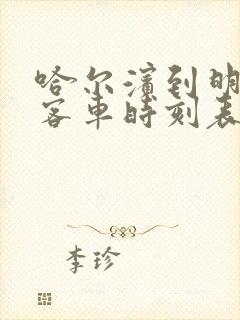 哈尔滨到明
客车时刻表
李珍